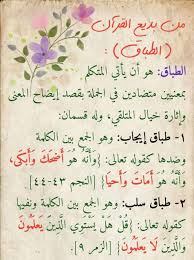 من بديع القرآن
(الطباق):
الطباق: هو أن يأتي المتكلم
بمعنيين متضادين في الجملة بقصد إيضاح المعنى
وإثارة خيال المتلقي، وله قسمان:
1- طباق إيجاب: وهو الجمع بين الكلمة
وضدها كقوله تعالى: {وَأَنَّهُ هُوَ أَضْحَكَ وَأَبْكَى،
وَأَنَّهُ هُوَ أَمَاتَ وَأَحْيَا} [النجم ٤٣-٤٤]
٢- طباق سلب: وهو الجمع بين الكلمة ونفيها
كقوله تعالى: {قُلْ هَلْ يَسْتَوِي الَّذِينَ يَعْلَمُونَ
وَالَّذِينَ لَا يَعْلَمُونَ} [الزمر ٩].